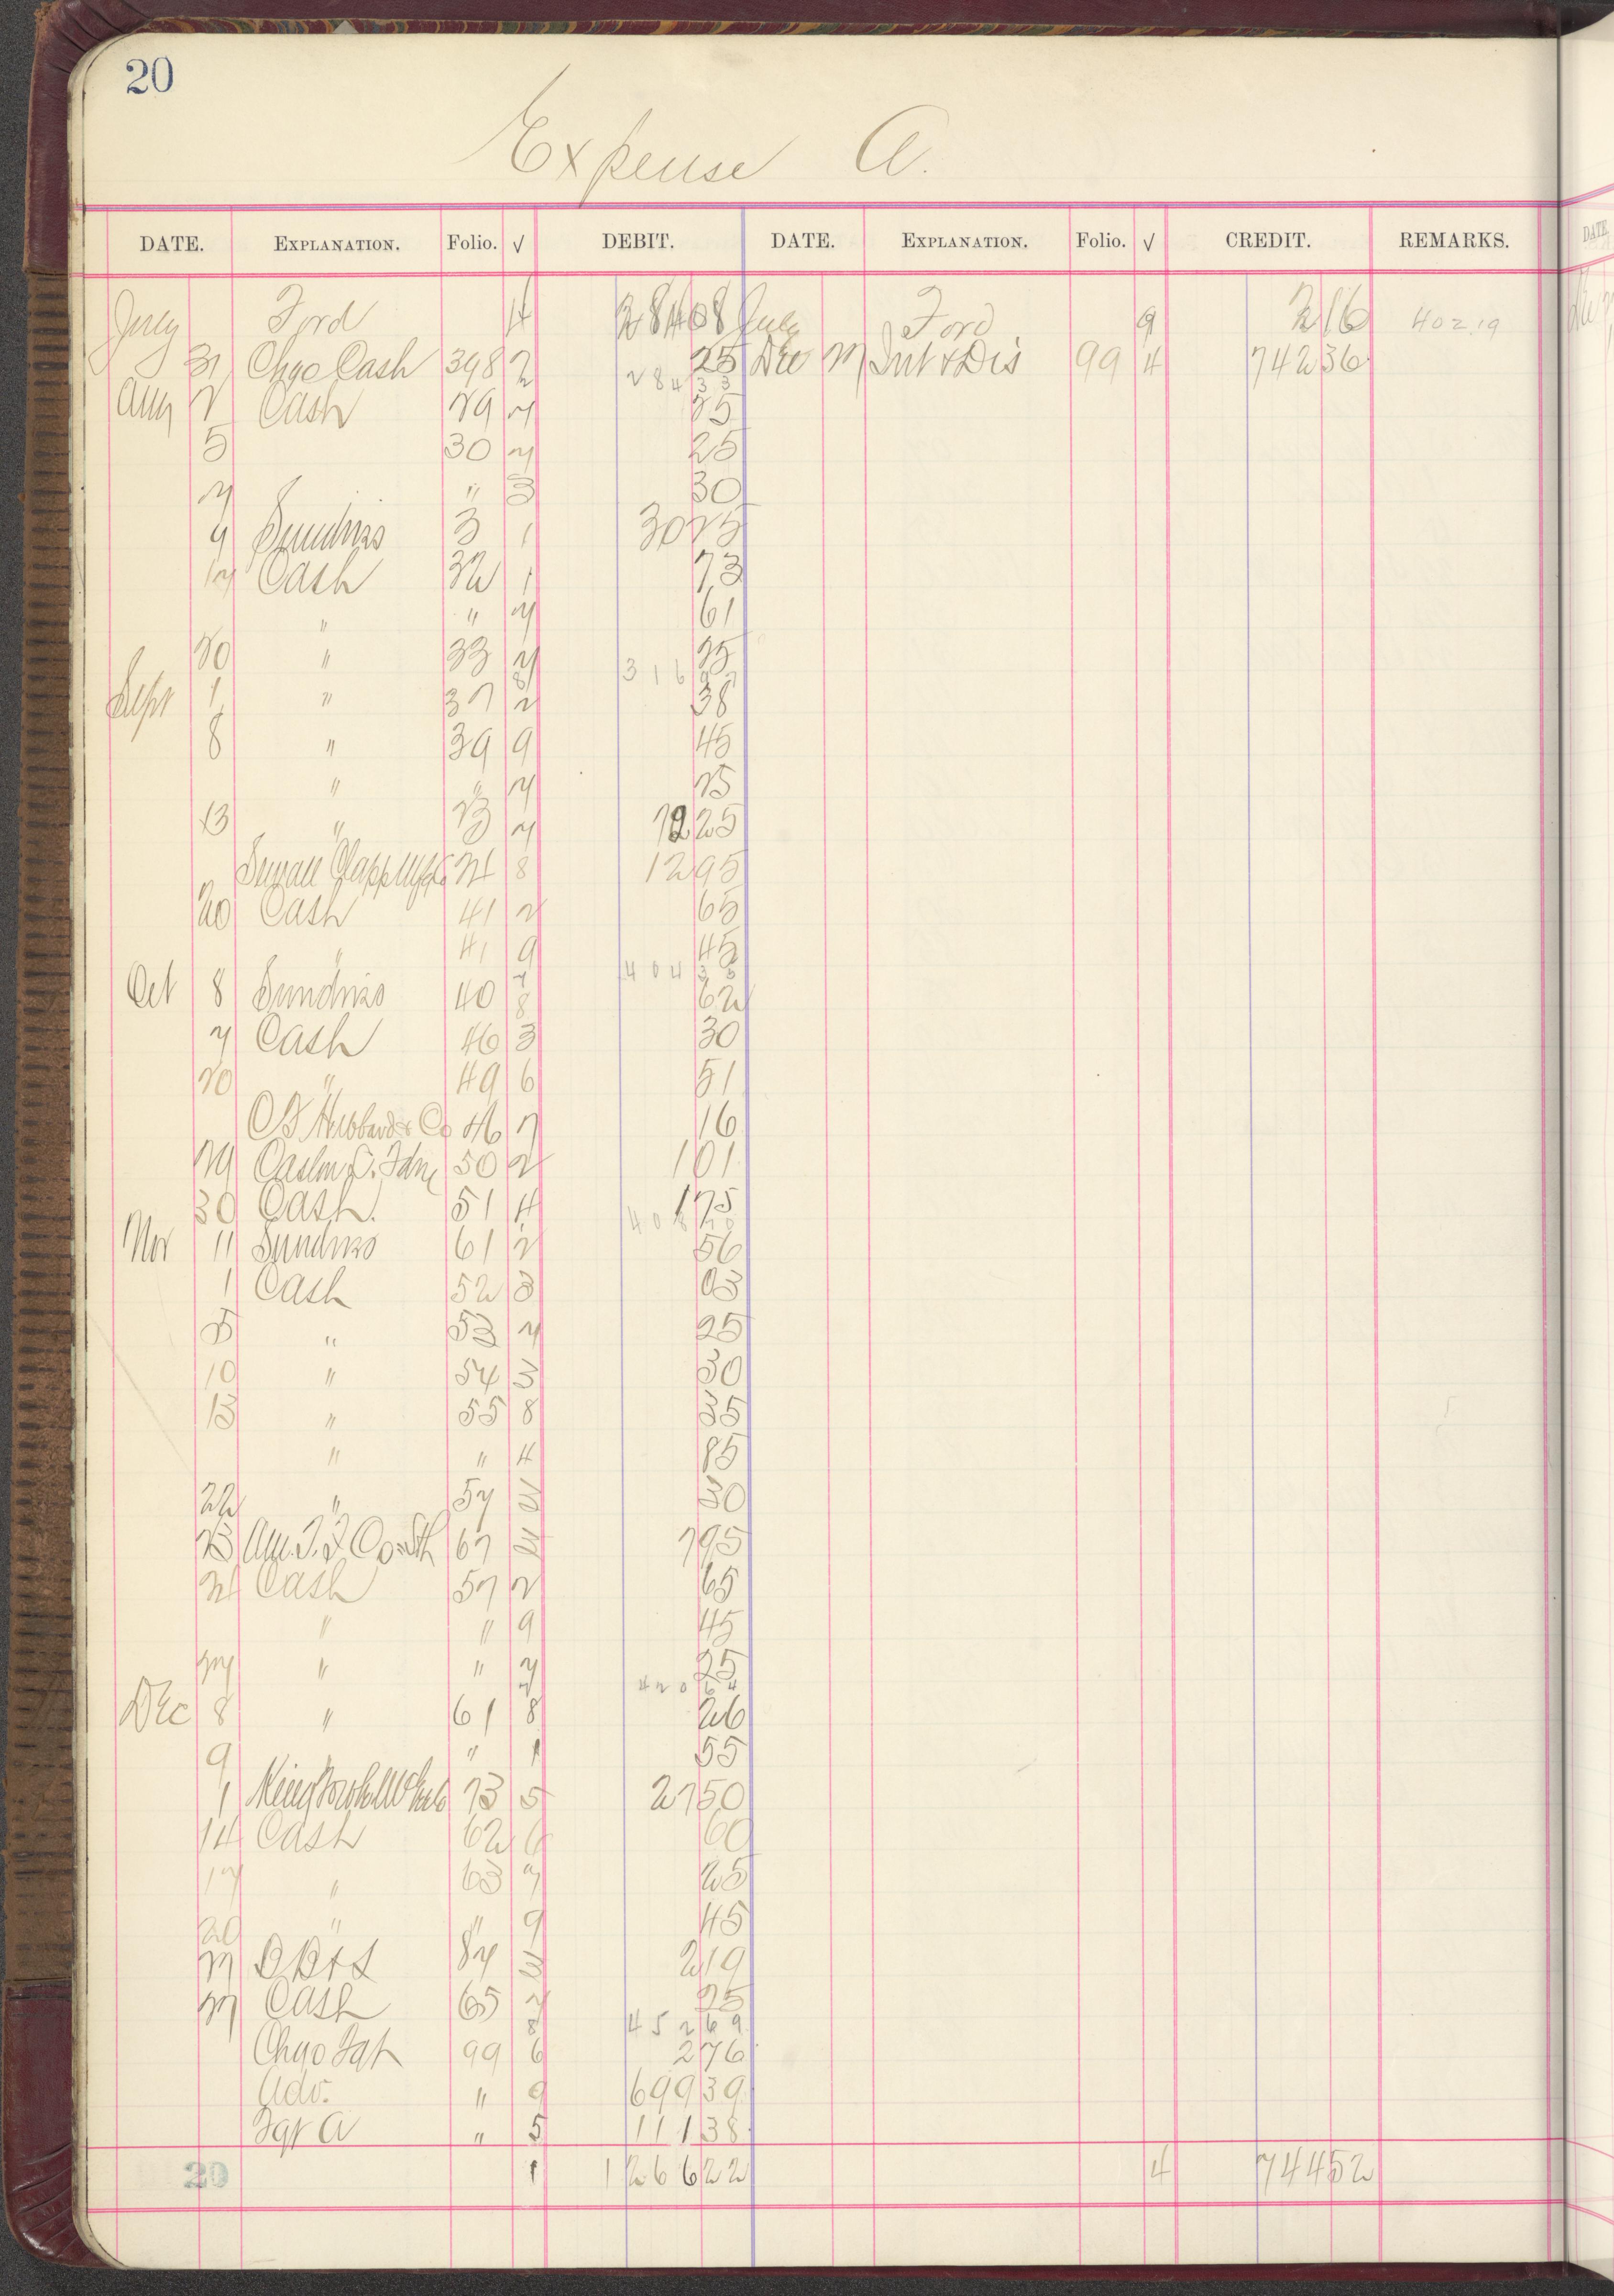 20
Expense A.
DATE. EXPLANATION. Folio. √ DEBIT. DATE. EXPLANATION. Folio. √ CREDIT. REMARKS.
July Ford 4 284 08 July Ford 9 2 16 402.19
31 Chgo Cash 398 2 25 Dec Int & Dis 99 4 742 36
284 33
Aug 2 Cash 29 7 25
5 30 7 25
7 " 3 30
9 Sundries 3 1 30 25
17 Cash 32 1 73
" " 7 61
20 " 33 7 25
316
Sept 1 " 37 2 38
8 " 39 9 45
" " 7 25
13 " 7 72 25
8 12 95
20 Cash 41 2 65
" 41 9 45
404 33
Oct 8 Sundries 40 8 62
7 Cash 46 3 30
20 " 49 6 51
Hibbard & Co 46 7 16
29 Caslon 50 2 1 01
30 Cash 51 4 1 75
408
Nov 11 Sundries 61 2 56
1 Cash 52 3 03
5 " 53 7 25
10 " 54 3 30
13 " 55 8 35
" " 4 85
22 " 57 3 30
23 Am. T. F. Co. 67 3 7 95
24 Cash 57 2 65
" " 9 45
27 " " 7 25
420 64
Dec 8 " 61 8 26
9 " 1 55
1 73 5 27 50
14 Cash 62 6 60
17 " 63 7 25
20 " " 9 45
87 3 2 19
27 Cash 65 7 25
452 69
Chgo 99 6 2 76
Adv. " 9 699 39
A " 5 111 38
20 1 1266 22 4 744 52